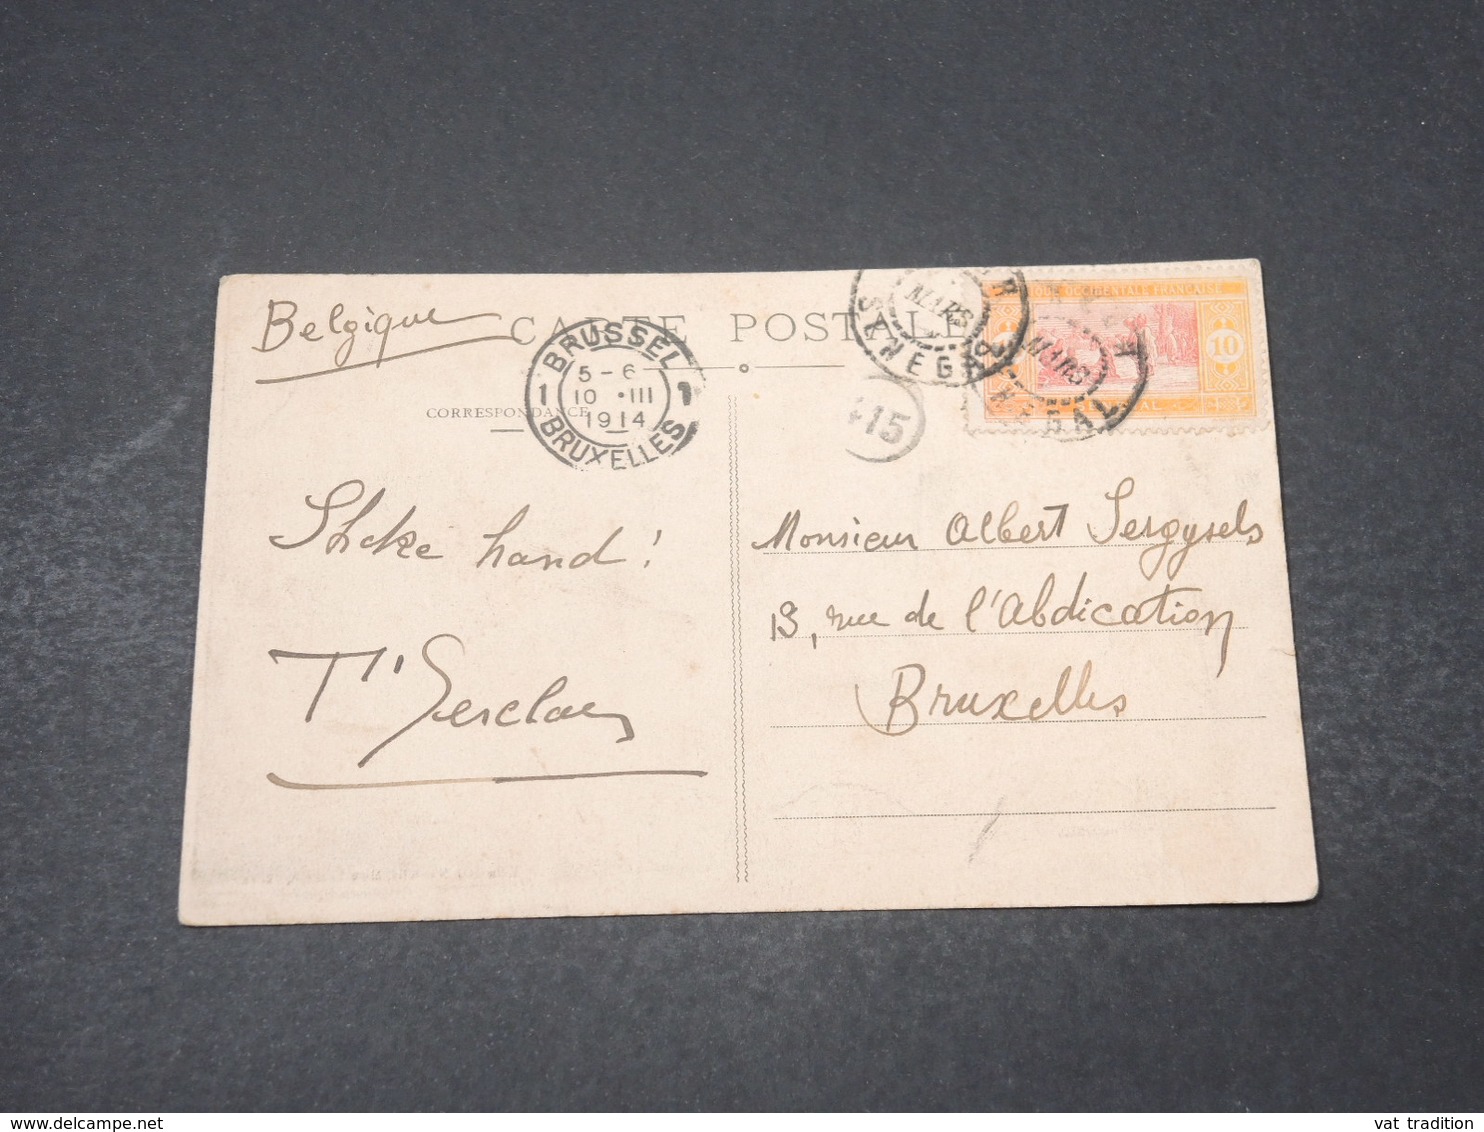 Belgique
CARTE POSTALE
BRUSSEL
5-6
1 10 •III 1
1914
BRUXELLES
CORRESPONDANCE
MARS
SÉNÉGAL
MARS
SÉNÉGAL
OCCIDENTALE FRANÇAISE
10
15
Shake hand!
T'Serclaes
Monsieur Albert Sergysels
13, rue de l'Abdication
Bruxelles
vat tradition